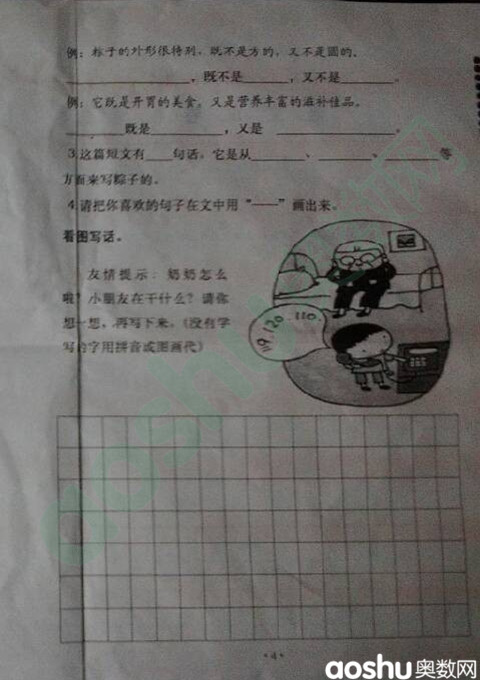 例：粽子的外形很特别，既不是方的，又不是圆的。
____________________，既不是______，又不是______。
例：它既是开胃的美食，又是营养丰富的滋补佳品。
________既是__________，又是 ________________。
3.这篇短文有____句话，它是从________、________、________等
方面来写粽子的。
4.请把你喜欢的句子在文中用“——”画出来。
看图写话。
友情提示：奶奶怎么
啦？小朋友在干什么？请你
想一想，再写下来。（没有学
写的字用拼音或图画代）
119, 120 110
aoshu
*4*
aoshu奥数网